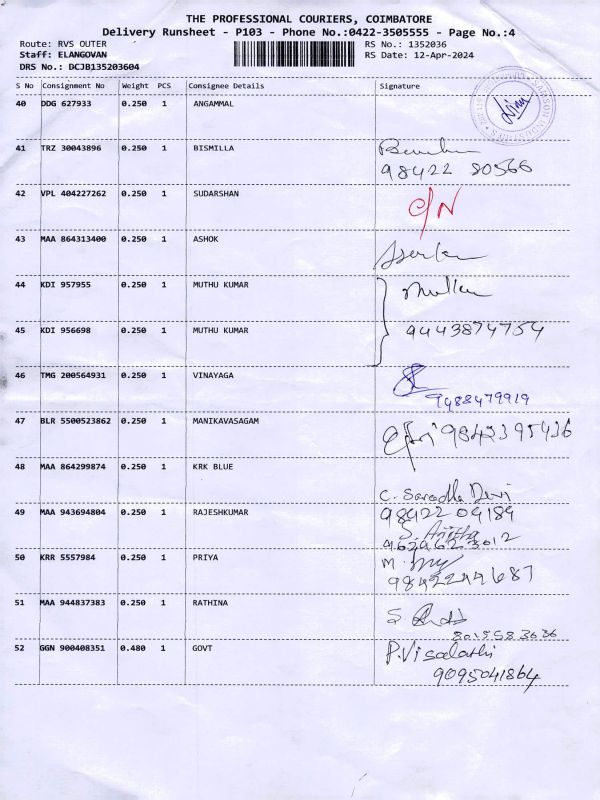 THE PROFESSIONAL COURIERS, COIMBATORE
Delivery Runsheet - P103 - Phone No.:0422-3505555 - Page No.:4
Route: RVS OUTER RS No.: 1352036
Staff: ELANGOVAN RS Date: 12-Apr-2024
DRS No.: DCJB135203604
S No Consignment No Weight PCS Consignee Details Signature
40 DDG 627933 0.250 1 ANGAMMAL
41 TRZ 30043896 0.250 1 BISMILLA
98422 80566
42 VPL 404227262 0.250 1 SUDARSHAN
C/N
43 MAA 864313400 0.250 1 ASHOK
44 KDI 957955 0.250 1 MUTHU KUMAR
45 KDI 956698 0.250 1 MUTHU KUMAR 9443874754
46 TMG 200564931 0.250 1 VINAYAGA
9488479919
47 BLR 5500523862 0.250 1 MANIKAVASAGAM 9842395436
48 MAA 864299874 0.250 1 KRK BLUE
C. Saradha Devi
49 MAA 943694804 0.250 1 RAJESHKUMAR 98422 04184
S. Anitha
9629623012
50 KRR 5557984 0.250 1 PRIYA M.
9842244687
51 MAA 944837383 0.250 1 RATHINA
S.
8015583636
52 GGN 900408351 0.480 1 GOVT P. Visalathi
9095041864